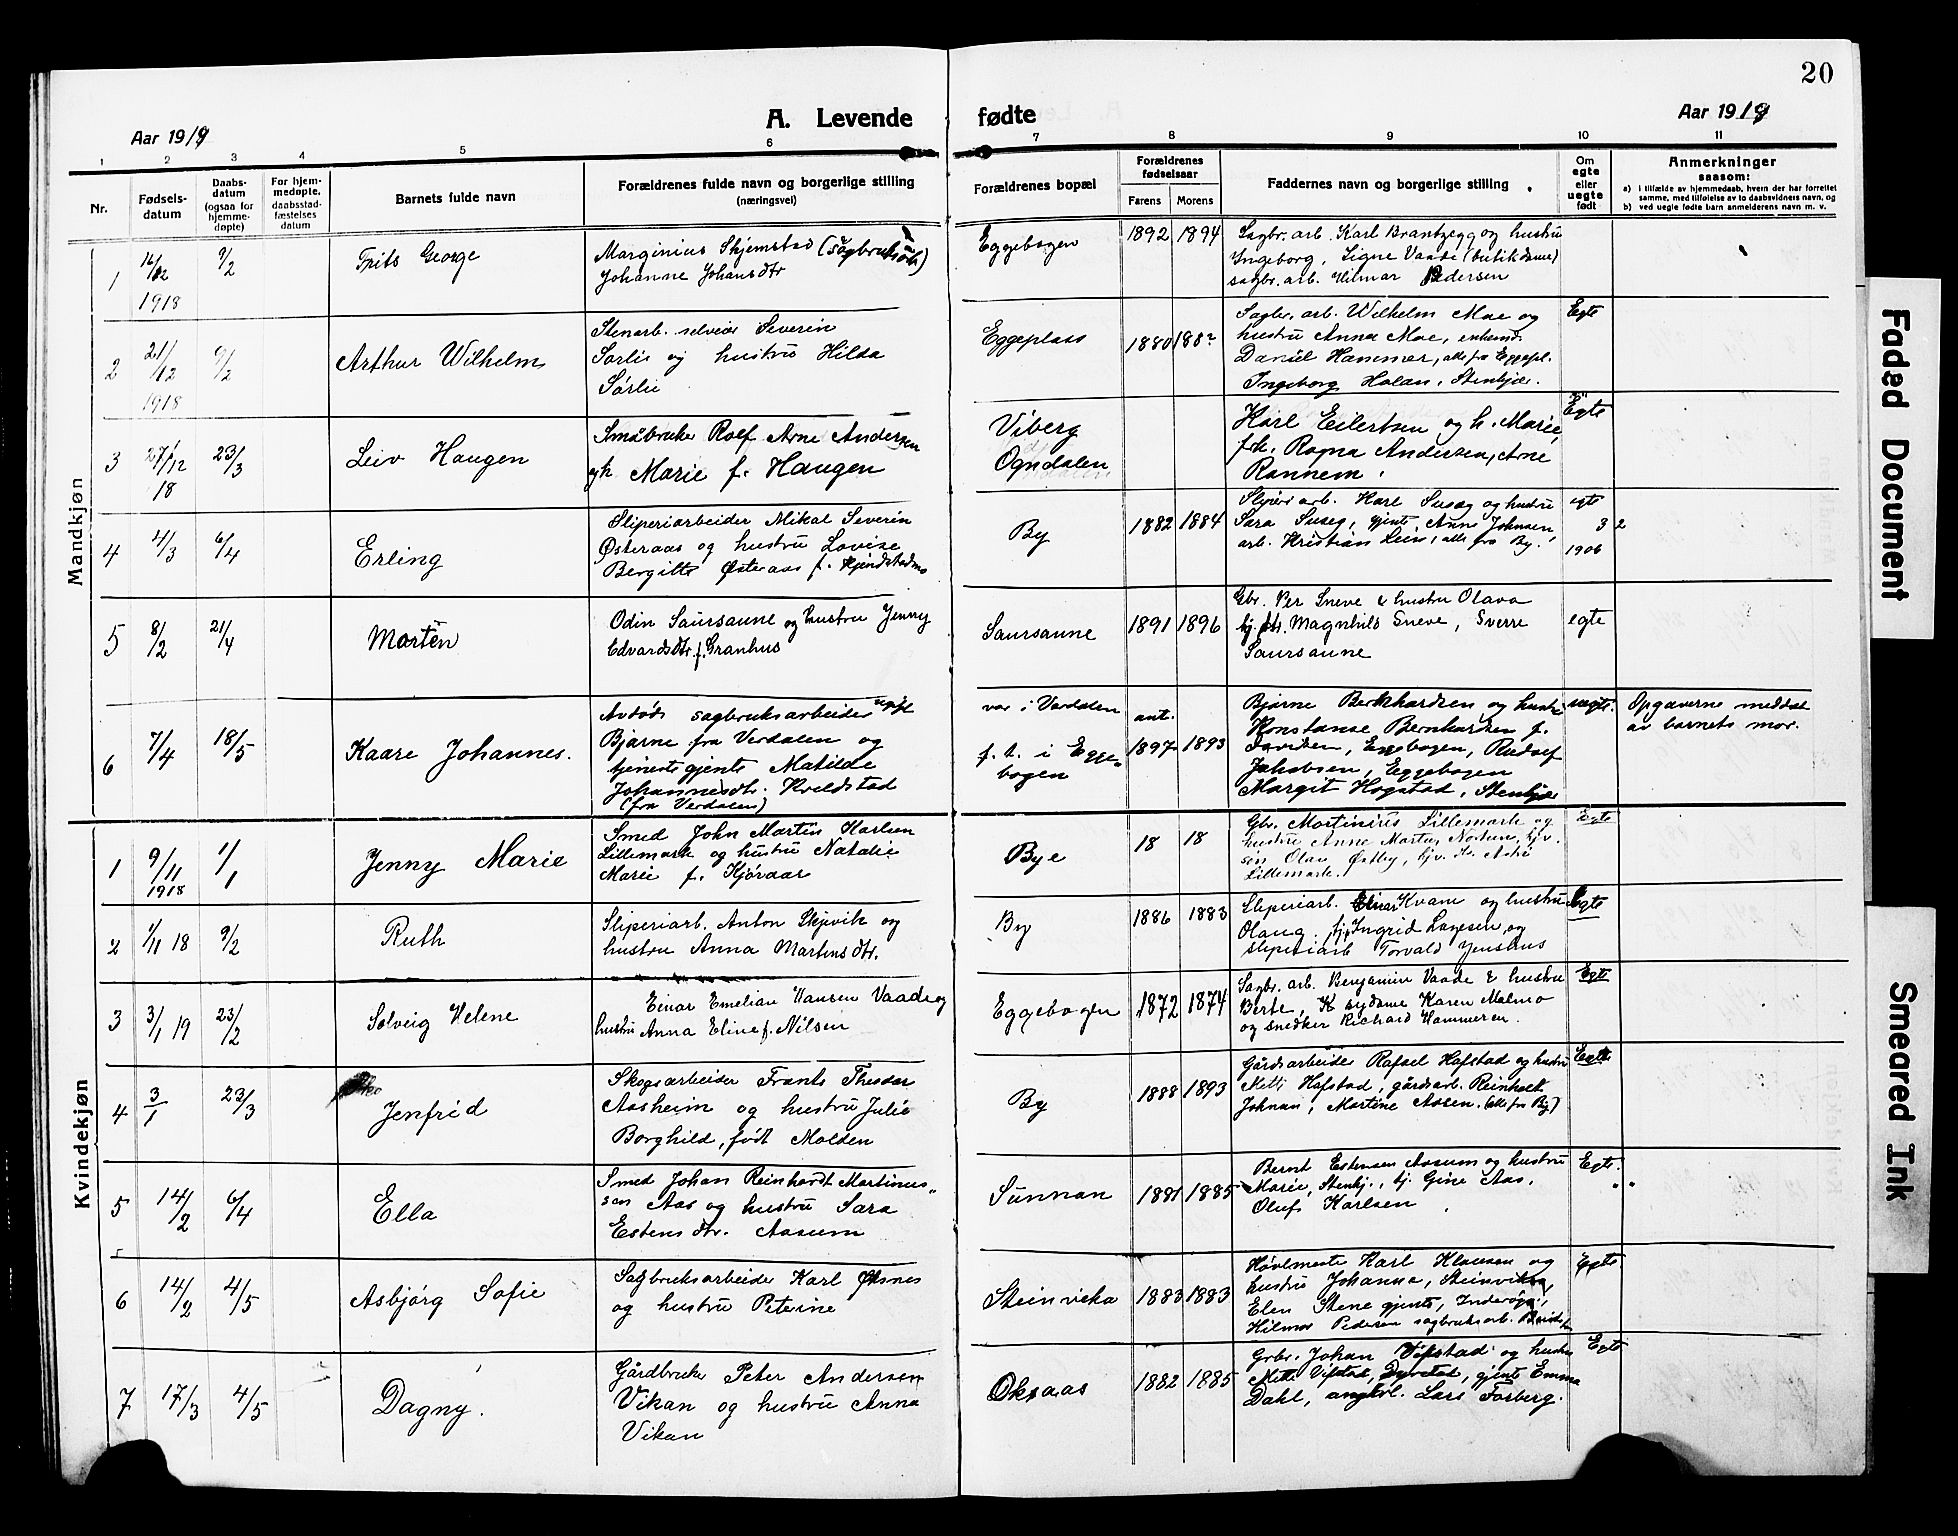 20
A. Levende fødte
Aar 1919
Aar 1919
1 2 3 4 5 6 7 8 9 10 11
Nr.
Fødsels-
datum
Daabs-
datum
(ogsaa for
hjemme-
døpte)
For hjem-
medøpte,
daabsstad-
fæstelses
datum
Barnets fulde navn
Forældrenes fulde navn og borgerlige stilling
(næringsvei)
Forældrenes bopæl
Forældrenes
fødselsaar
Farens Morens
Faddernes navn og borgerlige stilling
Om
egte
eller
uegte
født
Anmerkninger
saasom:
a) i tilfælde av hjemmedaab, hvem der har forrettet
samme, med tilføielse av to daabsvidners navn, og
b) ved uegte fødte barn anmelderens navn m. v.
Mandkjøn
1
16/12
1918
9/2
Frits George
Marginius Skjemstad (sagbruksarb)
Johanne Johansdtr
Eggebogen
1892 1894
Sagbr. arb. Karl Brantzegg og hustru
Ingeborg, Signe Vaade (butikdame)
sagbr. arb. Hilmar Pedersen
2
21/12
1918
9/2
Arthur Wilhelm
Stenarb. Severin
Sørlie og hustru Hilda
Sørlie
Eggeplass
1880 188
Sagbr. arb. Wilhelm Moe og
hustru Anna Moe, enkemd.
Daniel Hammer, alle fra Eggepl.
Ingeborg Holan, Stenkjær.
Egte
3
27/12
18
23/3
Leiv Haugen
Småbruker Rolf Arne Andersen
og h. Marie f. Haugen
Viberg
Ogndalen
Karl Eilertsen og h. Marie,
frk. Ragna Andersen, Arne
Rannem.
Egte
4
4/3
6/4
Erling
Sliperiarbeider Mikal Severin
Østeraas og hustru Lovise
Bergitte Østeraas f.
By
1882 1884
Sliperiarb. Karl Suseg og hustru
Sara Suseg, gjente Anne Johnsen
arb. Kristian Lein, alle fra By.
egte
3 2
1906
5
8/2
21/4
Morten
Odin Saursaune og hustru Jenny
Edvardsdtr f. Granhus
Saursaune
1891 1896
Gbr. Per Sneve & hustru Olava
Magnhild Sneve, Sverre
Saursaune
egte
6
7/4
18/5
Kaare Johannes.
Avdøde sagbruksarbeider
Bjarne fra Verdalen og
tjenestegjente Matilde
Johannesdtr. Kveldstad
(fra Verdalen)
var i Verdalen
f. t. i Egge-
bogen
ant.
1897 1893
Bjarne Bernhardsen og hustru
Konstanse Bernhardsen f.
Davidsen, Eggebogen, Rudolf
Jakobsen, Eggebogen
Margit Hogstad, Stenkjær
uegte.
Opgaverne meddelt
av barnets mor.
Kvindekjøn
1
9/11
1918
1/1
Jenny Marie
Smed John Martin Karlsen
Lillemark og hustru Natalie
Marie f. Kjøraas
Bye
18 18
Gbr. Mortinius Lillemark og
hustru Anne Marta,
Olav Østby,
Lillemark.
Egte
2
1/11 18
9/2
Ruth
Sliperiarb. Anton Skjevik og
hustru Anna Martinsdtr.
By
1886 1883
Sliperiarb. Einar Kvam og hustru
Olaug, Ingrid Lagesen, og
sliperiarb Torvald Jenshus
Egte
3
3/1 19
23/2
Solveig Helene
Einar Emelian Hansen Vaade og
hustru Anna Eline f. Nilsen
Eggebogen
1872 1874
Sagbr. arb. Benjamin Vaade & hustru
Berte, sydame Karen Malmo
og snedker Richard Hammeren.
Egte
4
3/1
23/3
Jenfrid
Skogsarbeider Frants Theodor
Aasheim og hustru Julie
Borghild, født Molden
By
1888 1893
Gårdsarbeider Rafael Hofstad og hustru
Metti Hofstad, gårdsarb. Reinholt
Johnan, Martine Aasen. (alle fra By)
Egte
5
14/2
6/4
Ella
Smed Johan Reinhardt Martinus-
sen Aas og hustru Sara
Estensdtr. Aasum
Sunnan
1881 1885
Bernt Estensen Aasum og hustru
Marie, Stenkj., tj. Gine Aas,
Oluf Karlsen
Egte.
6
14/2
4/5
Asbjørg Sofie
Sagbruksarbeider Karl Øksnes
og hustru Peterine
Steinvika
1883 1883
Høvlmester Karl Klausen og
hustru Johanna, Steinvika,
Elen Stene gjente, Inderøya,
Hilmar Pedersen sagbruksarb.
Egte
7
17/3
4/5
Dagny.
Gårdbruker Peter Andersen
Vikan og hustru Anna
Vikan
Oksaas
1882 1885
Grbr. Johan Vifstad og hustru
Mette Vifstad, gjente Emma
Dahl, Lars Forberg.
Egte
Faded Document
Smeared Ink